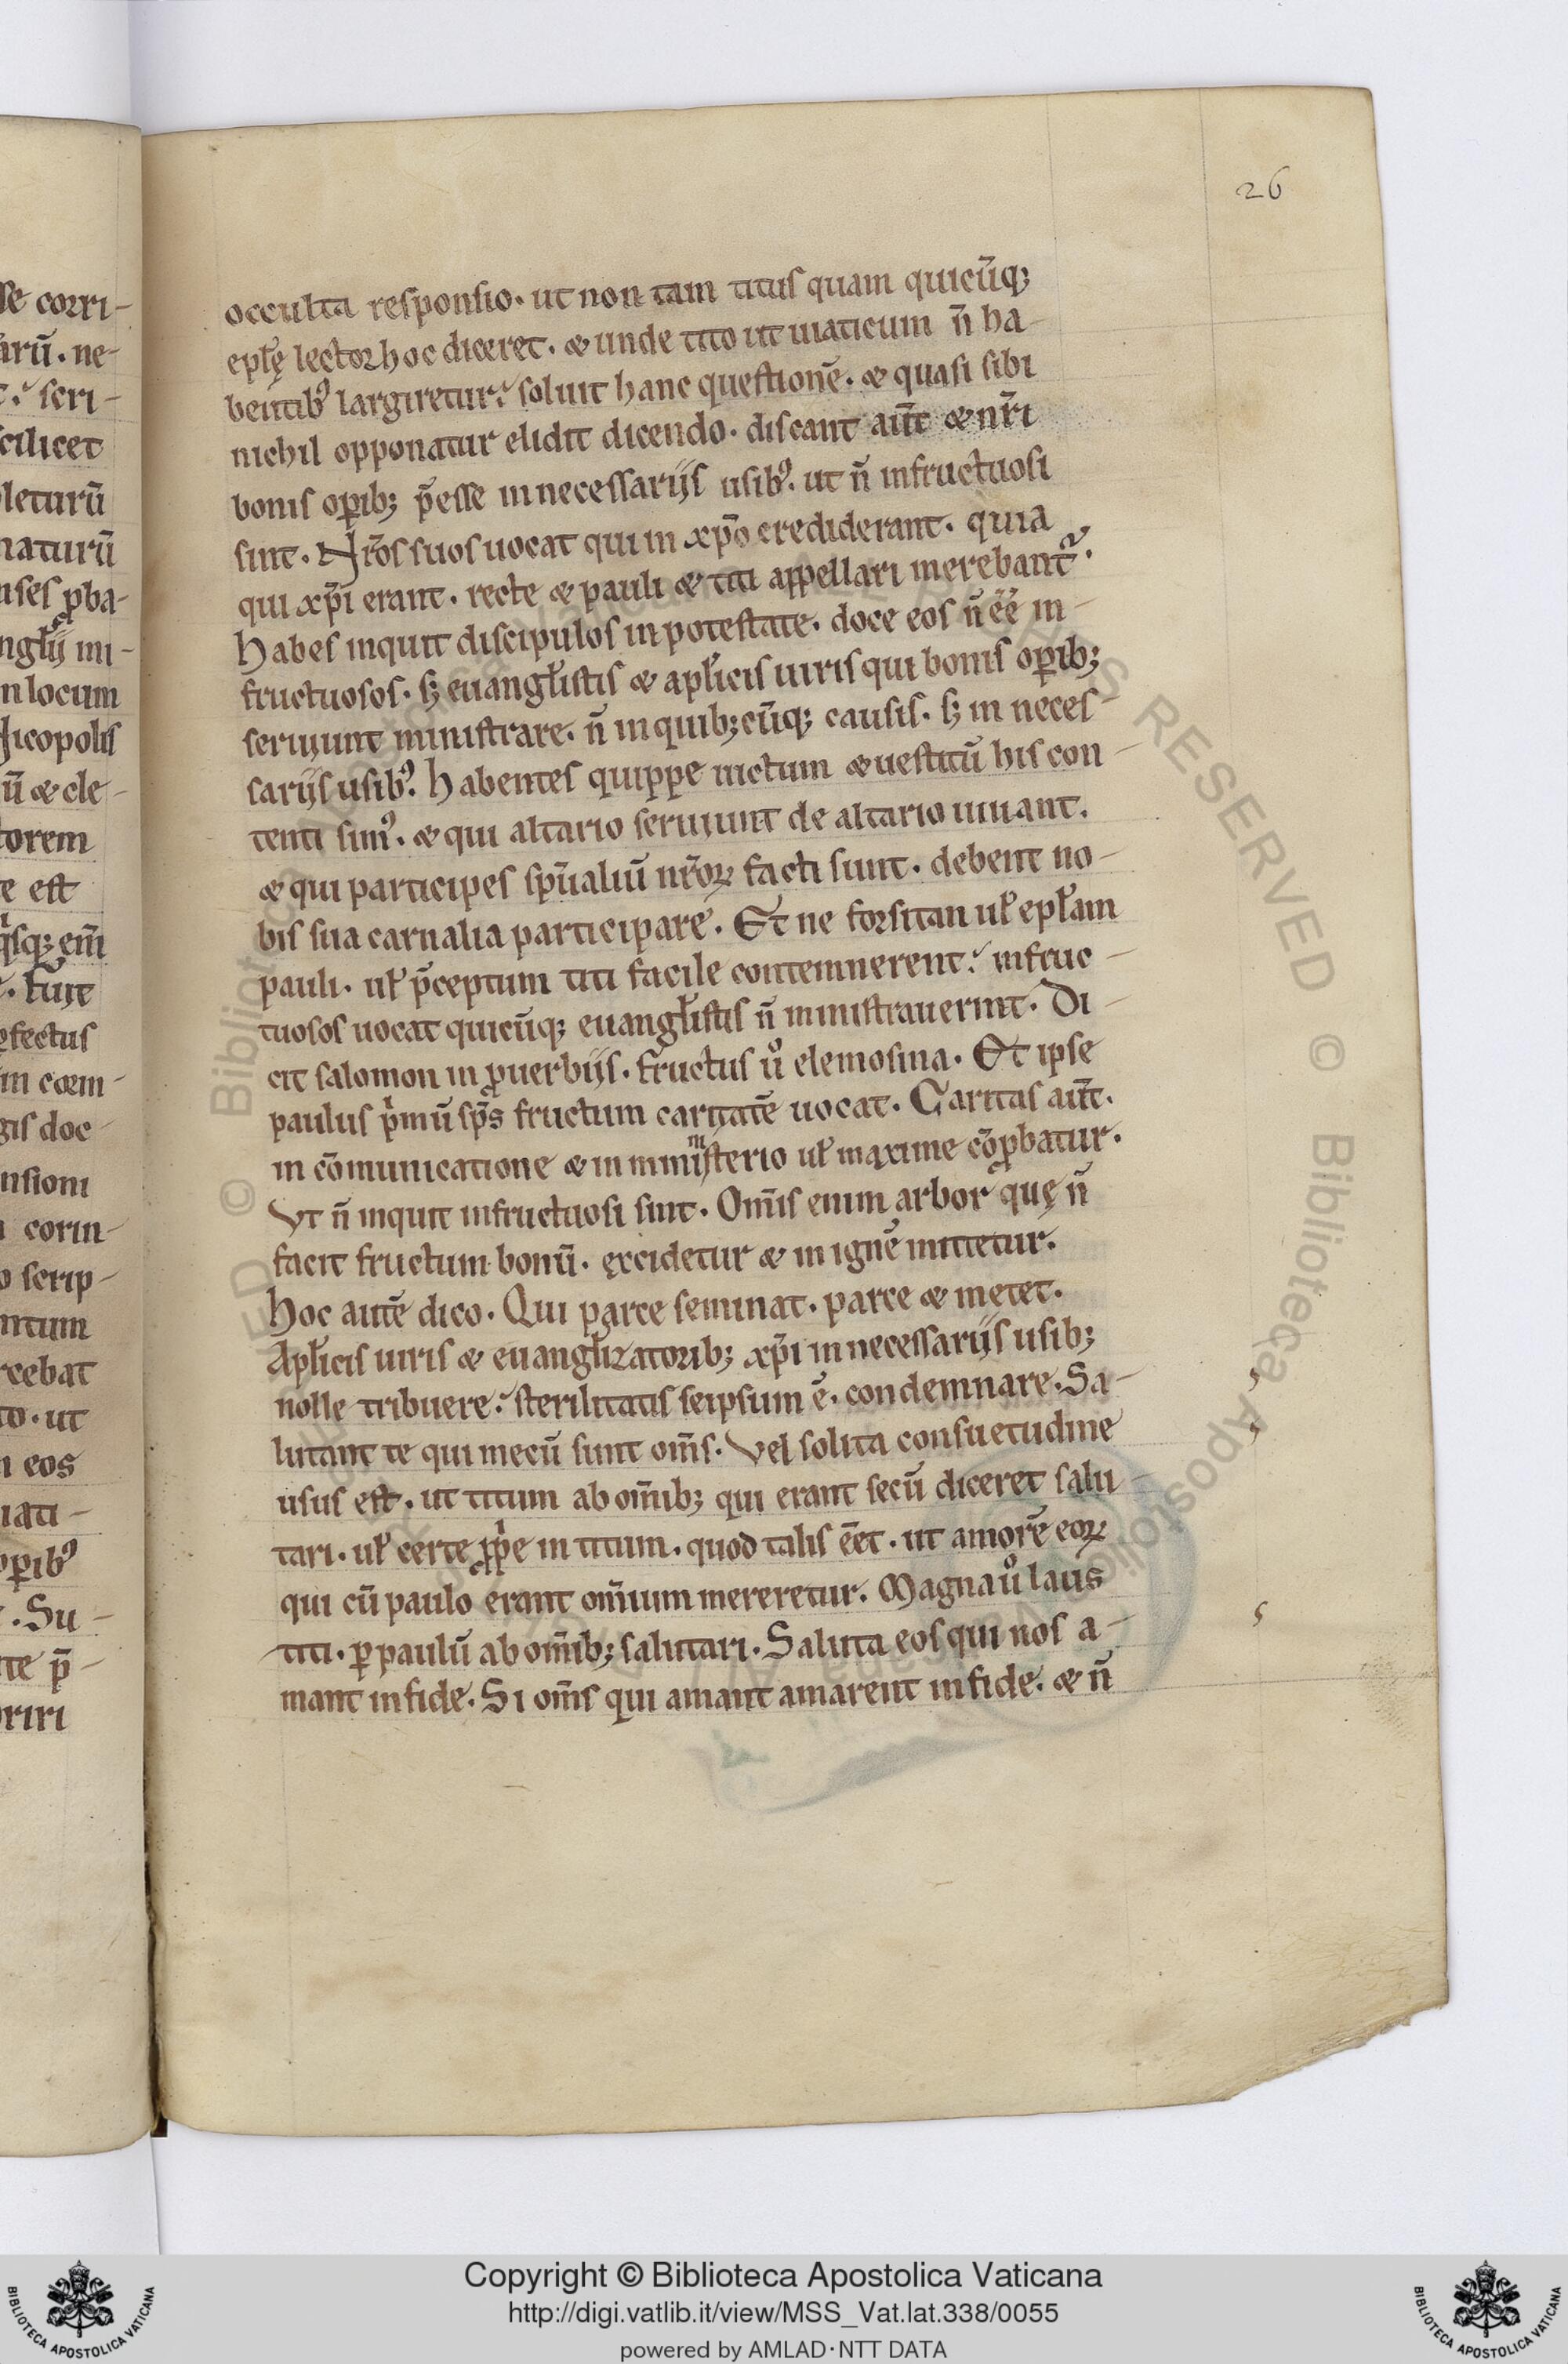 26
occulta responsio. ut non tam titus quam quicūq;
epl̄ę lector hoc diceret. & unde tito ut uiaticum n̄ ha-
bentib⁹ largiretur? soluit hanc questionē. & quasi sibi
nichil opponatur elidit dicendo. discant aūt & nr̄i
bonis op̱ib; p̄esse in necessarijs usib⁹. ut n̄ infructuosi
sint. Nr̄os suos uocat qui in xp̄o crediderant. quia
qui xp̄i erant. recte & pauli & titi appellari merebant᷑.
Habes inquit discipulos in potestate. doce eos n̄ ēē in-
fructuosos. s; euangl̄istis & apl̄icis uiris qui bonis op̱ib;
seruiunt ministrare. n̄ in quib;cūq; causis. s; in neces-
sarijs usib⁹. Habentes quippe uictum & uestitū his con-
tenti sim⁹. & qui altario seruiunt de altario uiuant.
& qui participes sp̄ualiū nr̄oꝝ facti sunt. debent no-
bis sua carnalia participare. Et ne forsitan ul̄ epl̄am
pauli. ul̄ p̄ceptum titi facile contemnerent? infruc-
tuosos uocat quicūq; euangl̄istis n̄ ministrauerint. Di-
cit salomon in ꝓuerbijs. fructus ů elemosina. Et ipse
paulus pⁱmū sp̄s fructum caritatē uocat. Caritas aūt.
in cōmunicatione & in ministerio ul̄ maxime cōꝓbatur.
Vt n̄ inquit infructuosi sint. Om̄is enim arbor quę n̄
facit fructum bonū. excidetur & in ignē mittetur.
Hoc autē dico. Qui parce seminat. parce & metet.
Apl̄icis uiris & euangl̄izatorib; xp̄i in necessarijs usib;
nolle tribuere? sterilitatis seipsum ē. condemnare. Sa-
lutant te qui mecū sunt om̄s. Vel solita consuetudine
usus est. ut titum ab om̄ib; qui erant secū diceret salu-
tari. ul̄ certe ꝓpⁱe in titum. quod talis ēēt. ut amorē eoꝝ
qui cū paulo erant om̄ium mereretur. Magna ů laus
titi. ꝑ paulū ab om̄ib; salutari. Saluta eos qui nos a-
mant in fide. Si om̄s qui amant amarent in fide. & n̄
Copyright © Biblioteca Apostolica Vaticana
http://digi.vatlib.it/view/MSS_Vat.lat.338/0055
powered by AMLAD·NTT DATA